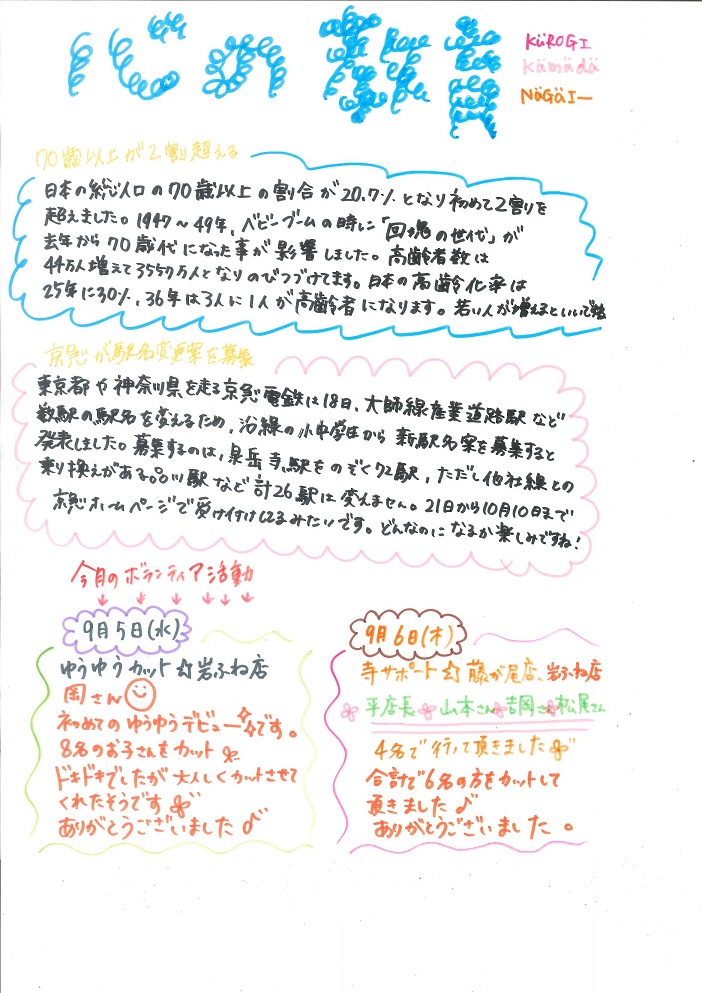 心の執音
KüROGI
Kämädä
NäGäIー
70歳以上が2割超える
日本の総人口の70歳以上の割合が20.7%となり初めて2割りを
超えました。1947〜49年、ベビーブームの時に「団塊の世代」が
去年から70歳代になった事が影響しました。高齢者数は
44万人増えて3557万人となりのびつづけてます。日本の高齢化率は
25年に30%、36年は3人に1人が高齢者になります。若い人が増えるといいですね
京急が駅名変更案を募集
東京都や神奈川県を走る京急電鉄は18日、大師線産業道路駅など
数駅の駅名を変えるため、沿線の小中学生から新駅名案を募集すると
発表しました。募集するのは、泉岳寺駅をのぞく72駅、ただし他社線との
乗り換えがある品川駅など計26駅は変えません。21日から10月10日まで
京急ホームページで受け付けしてるみたいです。どんなのになるか楽しみですね!
今月のボランティア活動
9月5日(水)
ゆうゆうカット☆岩ふね店
岡さん
初めてのゆうゆうデビューです。
8名のお子さんをカット
ドキドキでしたが大人しくカットさせて
くれたそうです
ありがとうございました♪
9月6日(木)
寺サポート☆藤が尾店、岩ふね店
平店長 山本さん 吉岡さん 松尾さん
4名で行って頂きました
合計で6名の方をカットして
頂きました♪
ありがとうございました。